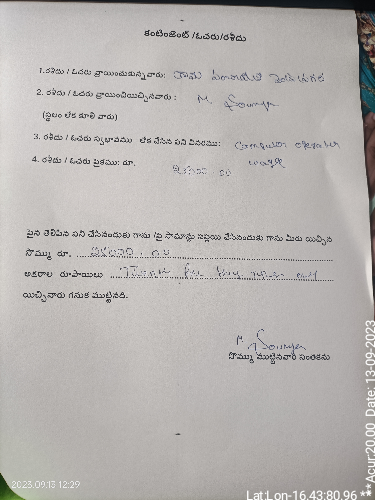 కంటింజెంట్ /ఓచరు/రశీదు
1.రశీదు / ఓచరు వ్రాయించుకున్నవారు: గ్రామ పంచాయతీ
2. రశీదు / ఓచరు వ్రాయించియిచ్చినవారు : M. Sowmya
(స్థలం లేక కూలి వారు)
3. రశీదు / ఓచరు స్వభావము లేక చేసిన పని వివరము: Computer operator
wage
4. రశీదు / ఓచరు పైకము: రూ.
పైన తెలిపిన పని చేసినందుకు గాను /పై సామాగ్రి సప్లయి చేసినందుకు గాను మీరు యిచ్చిన
సొమ్ము రూ.
అక్షరాల రూపాయలు
యిచ్చినారు గనుక ముట్టినది.
M. Sowmya
సొమ్ము ముట్టినవారి సంతకము
2023.09.13 12:29
Lat:Lon-16.43:80.96 ** Acur:20.00 Date: 13-09-2023